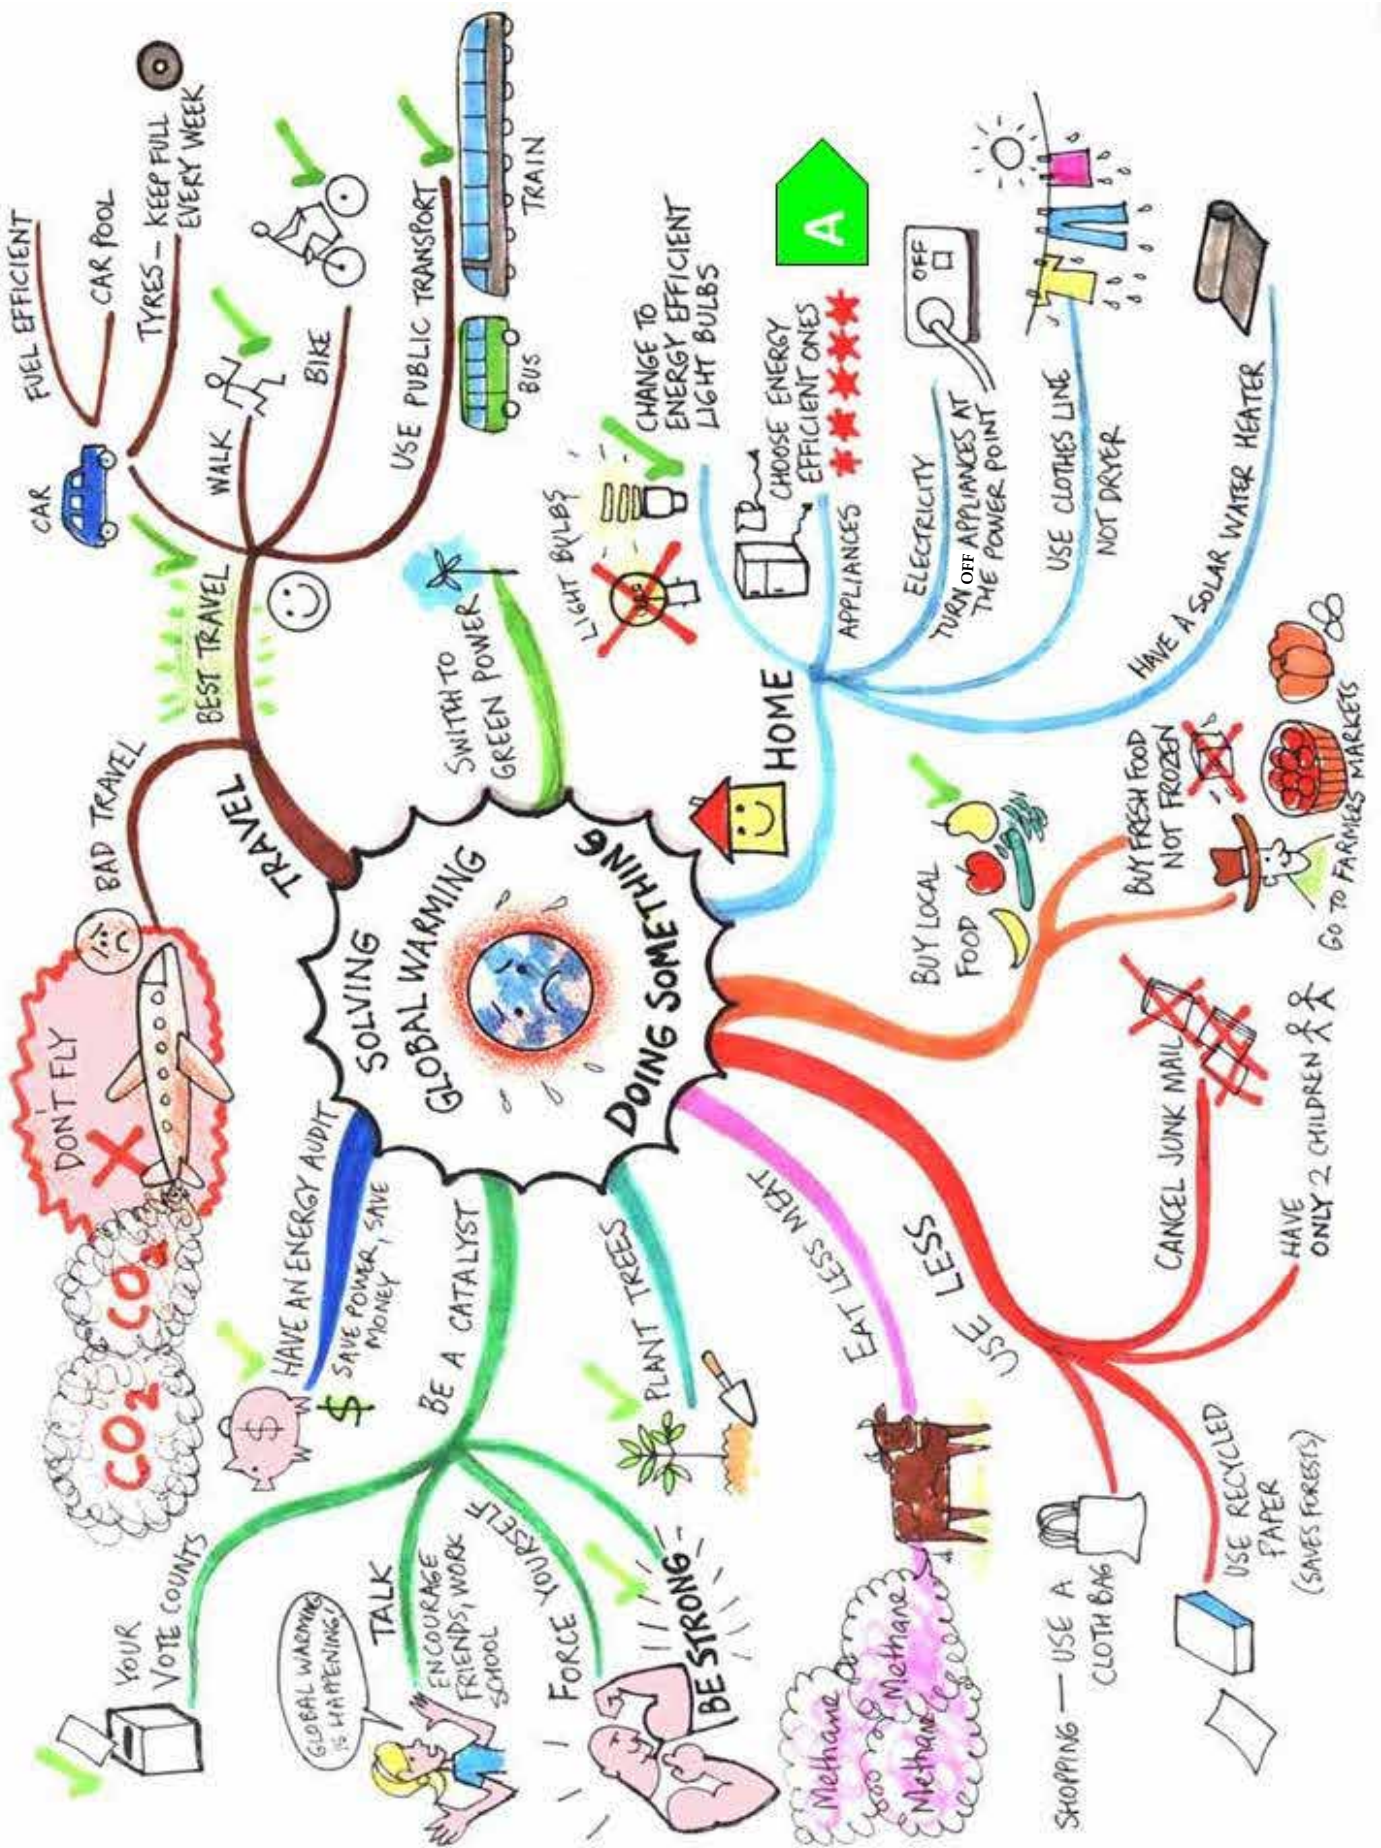 SOLVING
GLOBAL WARMING
DOING SOMETHING
TRAVEL
BAD TRAVEL
DON'T FLY
CO2
CO2
BEST TRAVEL
CAR
FUEL EFFICIENT
CAR POOL
TYRES – KEEP FULL
EVERY WEEK
WALK
BIKE
USE PUBLIC TRANSPORT
BUS
TRAIN
SWITH TO
GREEN POWER
HOME
LIGHT BULBS
CHANGE TO
ENERGY EFFICIENT
LIGHT BULBS
APPLIANCES
CHOOSE ENERGY
EFFICIENT ONES
A
ELECTRICITY
TURN OFF APPLIANCES AT
THE POWER POINT
OFF
USE CLOTHES LINE
NOT DRYER
HAVE A SOLAR WATER HEATER
BUY LOCAL
FOOD
BUY FRESH FOOD
NOT FROZEN
GO TO FARMERS MARKETS
USE LESS
CANCEL JUNK MAIL
HAVE
ONLY 2 CHILDREN
USE RECYCLED
PAPER
(SAVES FORESTS)
SHOPPING — USE A
CLOTH BAG
EAT LESS MEAT
Methane
Methane
Methane
PLANT TREES
BE A CATALYST
YOUR
VOTE COUNTS
TALK
ENCOURAGE
FRIENDS, WORK
SCHOOL
GLOBAL WARMING
IS HAPPENING!
FORCE YOURSELF
BE STRONG
HAVE AN ENERGY AUDIT
$ SAVE POWER, SAVE
MONEY
$